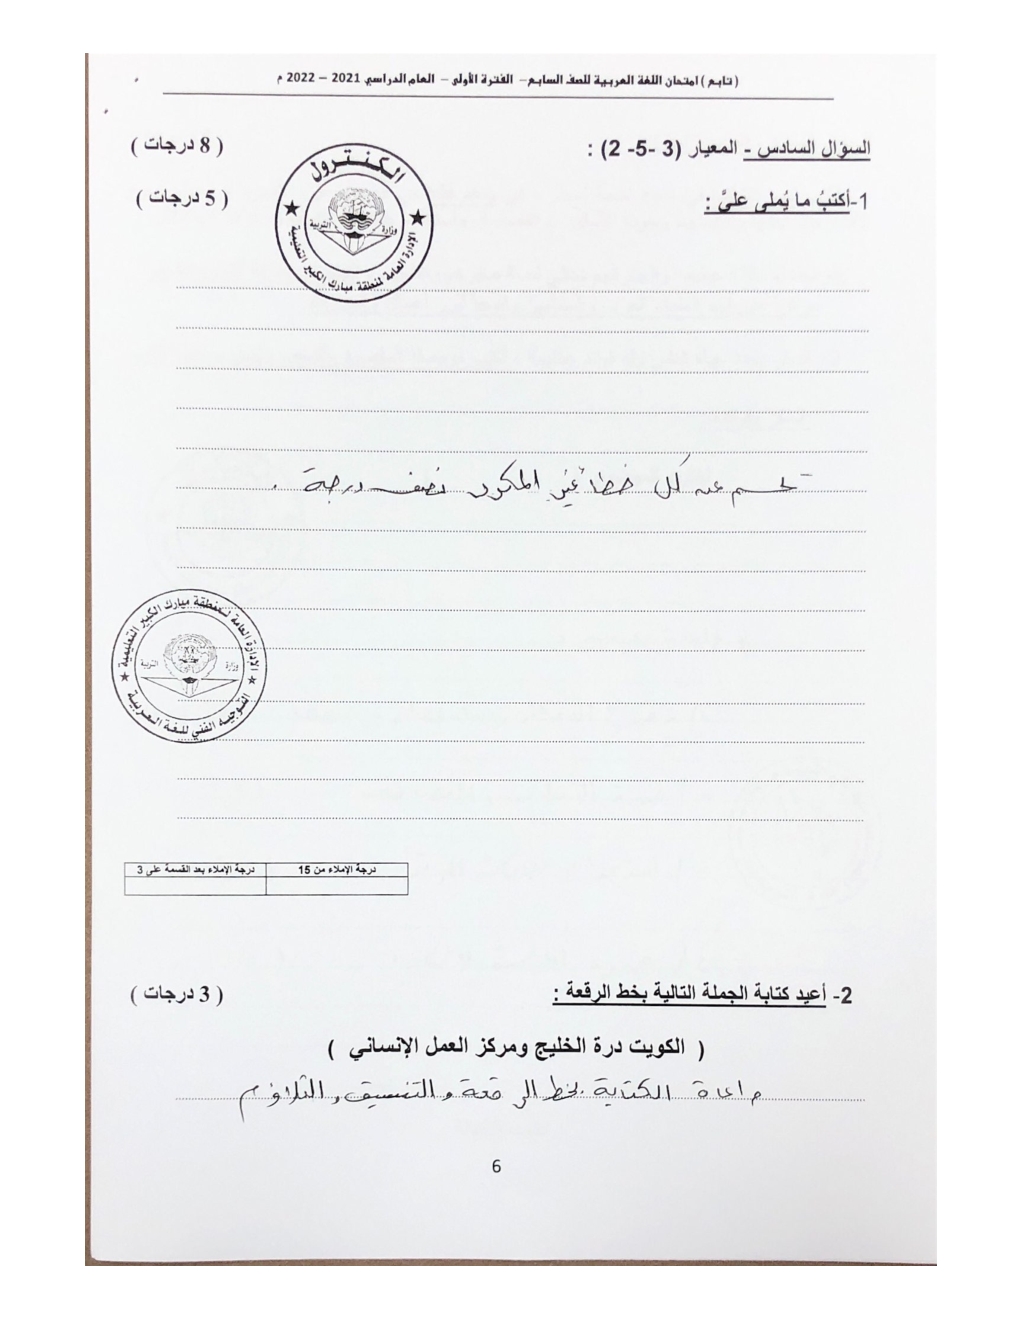 ( تابع ) امتحان اللغة العربية للصف السابع – الفترة الأولى – العام الدراسي 2021 – 2022 م
السؤال السادس - المعيار (3 -5- 2) : ( 8 درجات )
1-أكتبُ ما يُملى عليَّ : ( 5 درجات )
الكنترول
وزارة التربية
الإدارة العامة لمنطقة مبارك الكبير التعليمية
تحسم عن كل خطأ غير المكرر نصف درجة .
الإدارة العامة لمنطقة مبارك الكبير التعليمية
وزارة التربية
التوجيه الفني للغة العربية
درجة الإملاء من 15 درجة الإملاء بعد القسمة على 3
2- أعيد كتابة الجملة التالية بخط الرقعة : ( 3 درجات )
( الكويت درة الخليج ومركز العمل الإنساني )
مراعاة الكتابة بخط الرقعة والتنسيق والتلاؤم
6